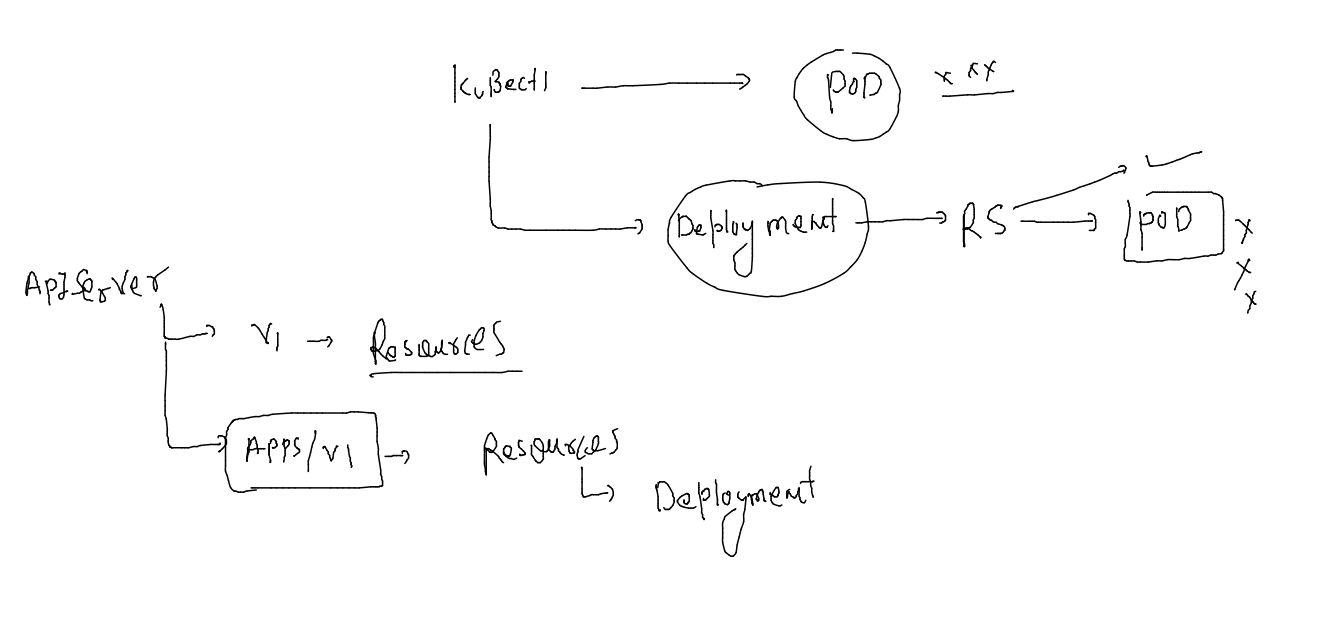 KuBectl POD x x x
Deployment RS POD x
x
x
ApIServer
V1 Resources
Apps/v1 Resources
Deployment